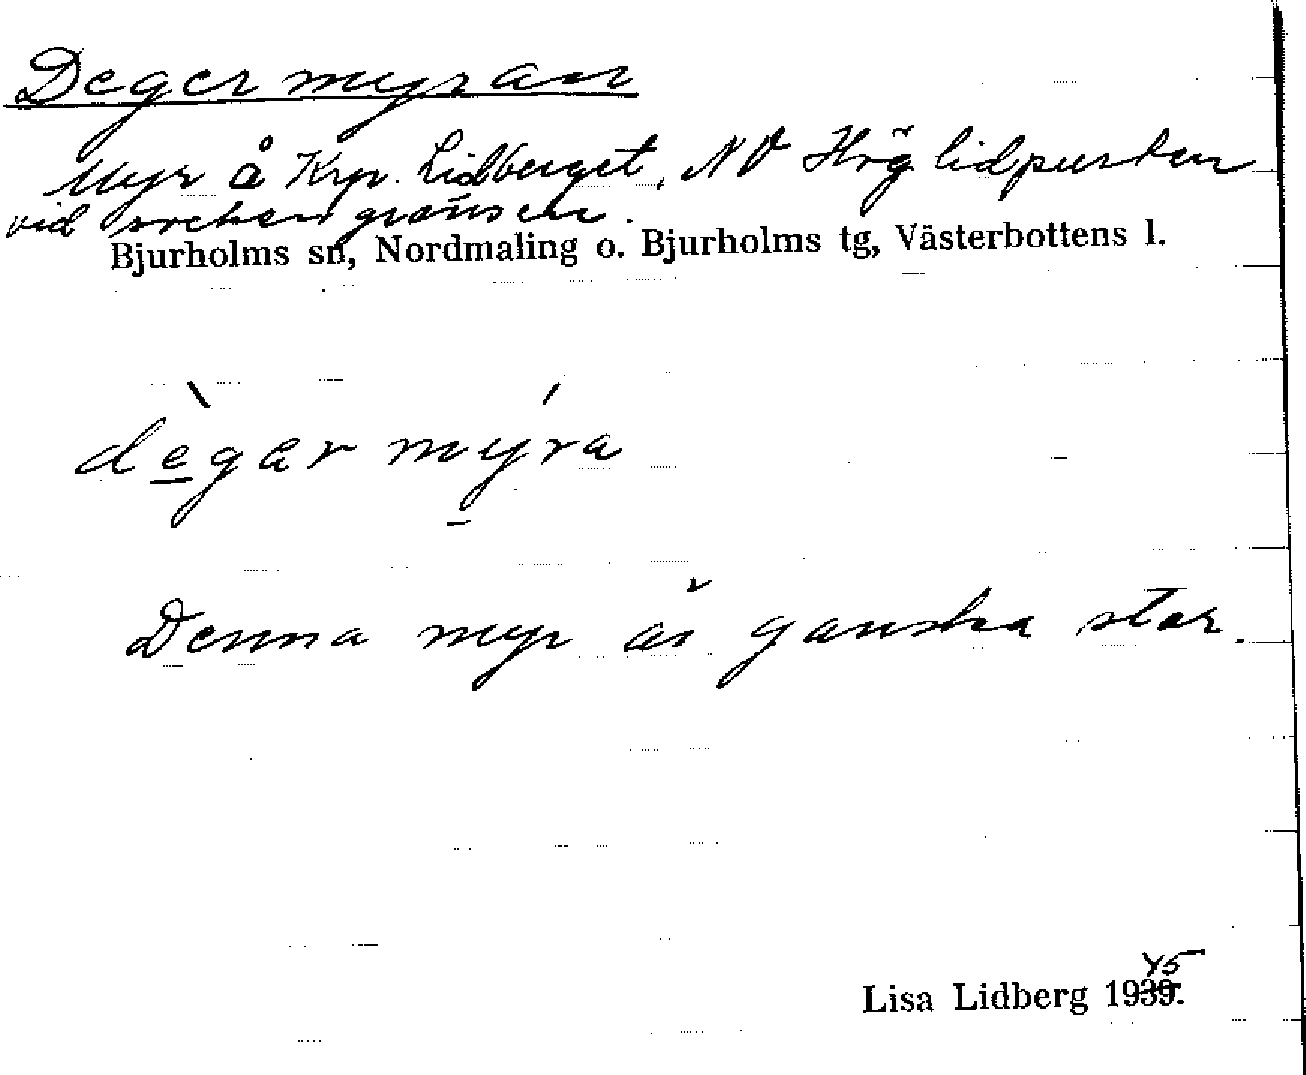 Degermyran
Myr å Krp. Lidberget, NV Höglidpusten
vid sockengränsen.
Bjurholms sn, Nordmaling o. Bjurholms tg, Västerbottens l.
dègar mýra
Denna myr är ganska stor.
Lisa Lidberg 1945.